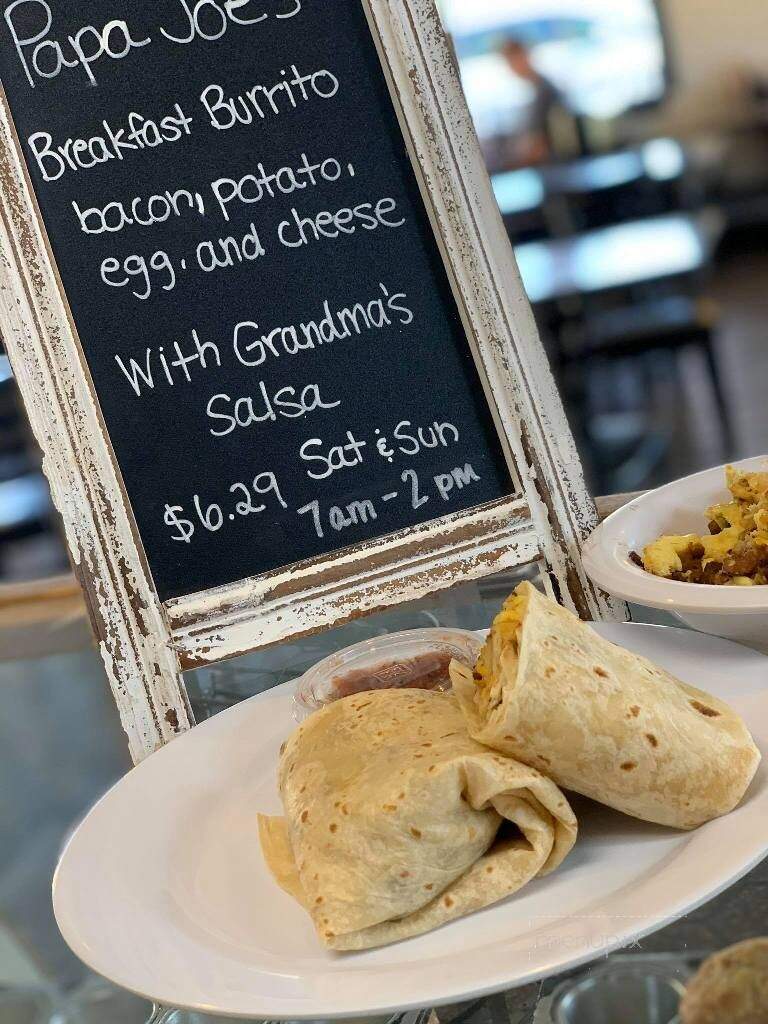 Papa Joe's
Breakfast Burrito
bacon, potato,
egg, and cheese
With Grandma's
Salsa
$6.29 Sat & Sun
7am - 2 pm
menupix